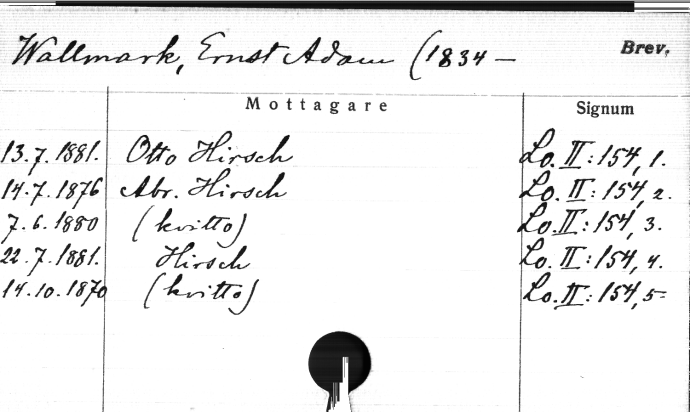 Wallmark, Ernst Adam (1834 — Brev.
Mottagare Signum
13.7.1881. Otto Hirsch Lo. II: 154, 1.
14.7.1876 Abr. Hirsch Lo. II: 154, 2.
7.6.1880 (kvitto) Lo. II: 154, 3.
22.7.1881. Hirsch Lo. II: 154, 4.
14.10.1870 (kvitto) Lo. II: 154, 5